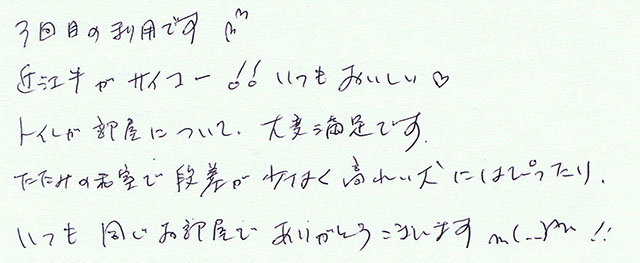 3回目の利用です ^^
近江牛がサイコー!! いつもおいしい♡
トイレが部屋について、大変満足です。
たたみの和室で段差が少なく高れい犬にはぴったり。
いつも同じお部屋でありがとうございます m(_ _)m !!